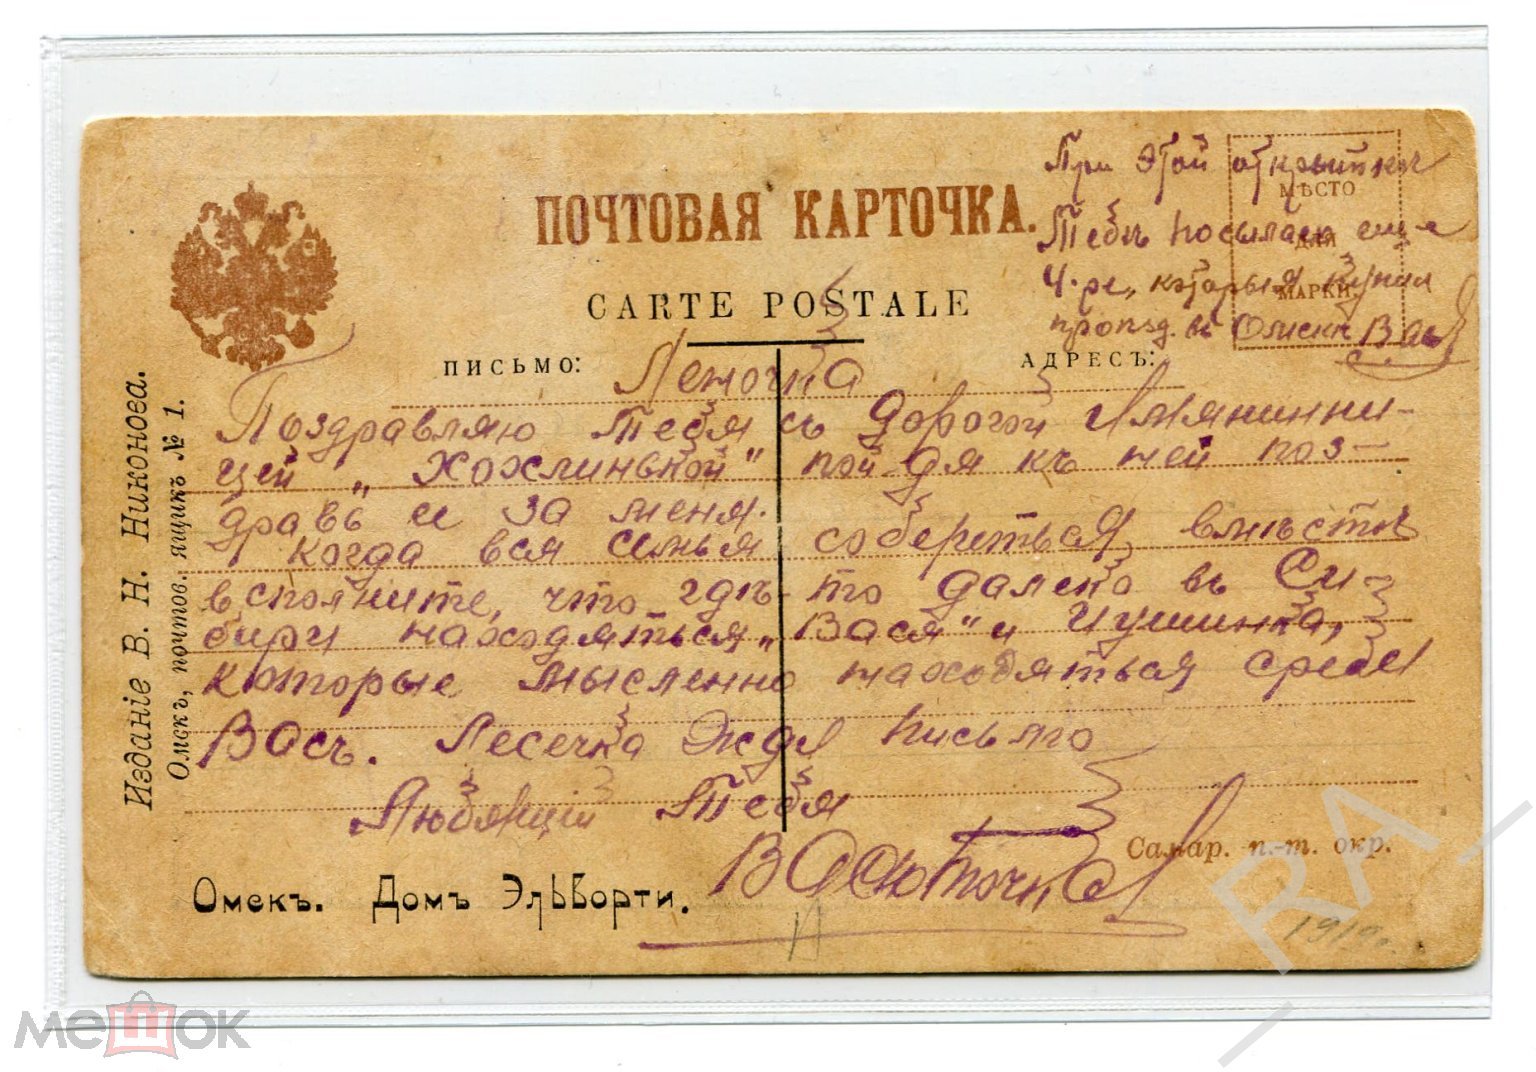 ПОЧТОВАЯ КАРТОЧКА.
CARTE POSTALE
ПИСЬМО:
АДРЕСЪ:
МѢСТО
ДЛЯ
МАРКИ.
При этой открыткѣ
Тебѣ посылаю еще
4-ре, которыя купил
проѣзд. въ Омскѣ Вася
Леночка
Поздравляю Тебя съ дорогой Имянинни-
цей „Хохлинькой" пойдя къ ней поз-
дравь и за меня.
Когда вся семья собереться вмѣстѣ
вспомните, что гдѣ-то далеко въ Си-
бири находяться „Вася" и
которые мысленно находяться среди
Васъ. Лесечка Жду письмо
Любящій Тебя
Васюточка
Изданіе В. Н. Никонова.
Омскъ, почтов. ящикъ № 1.
Омскъ. Домъ Эльворти.
Самар. п.-т. окр.
RA
мешок